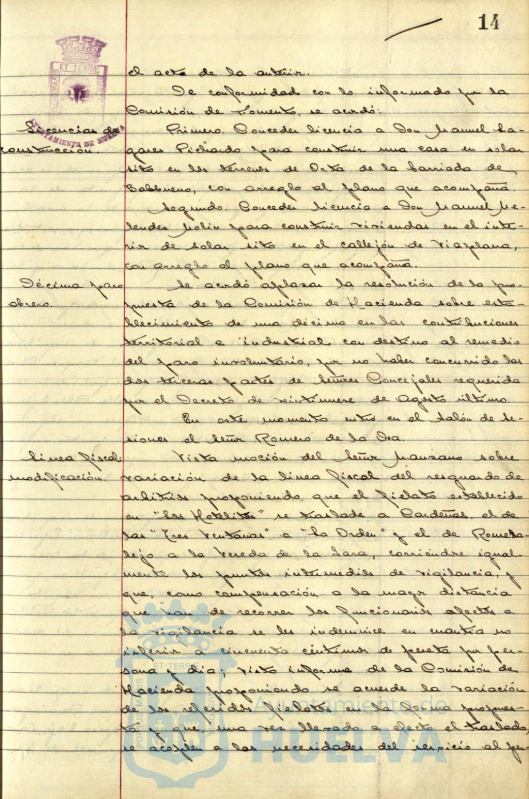 14
el acta de la anterior.
De conformidad con lo informado por la
Comisión de Fomento, se acordó:
Licencias de
construcción.
Primero. Conceder licencia a Don Manuel La-
gares Pichardo para construir una casa en solar
sito en los terrenos de Orta de la barriada de
con arreglo al plano que acompaña
Segundo. Conceder licencia a Don Manuel Me-
lendez Molin para construir viviendas en el inte-
rior de solar sito en el callejón de Viaplana,
con arreglo al plano que acompaña.
Décima paro
obrero.
Se acordó aplazar la resolución de la pro-
puesta de la Comisión de Hacienda sobre esta-
blecimiento de una décima en las contribuciones
territorial e industrial con destino al remedio
del paro involuntario, por no haber concurrido las
dos terceras partes de Señores Concejales requerida
por el Decreto de veintinueve de Agosto último
En este momento entró en el Salón de Se-
siones el Señor Romero de la Osa.
Linea fiscal:
modificación.
Vista moción del Señor Manzano sobre
variación de la linea fiscal del resguardo de
arbitrios proponiendo que el fielato establecido
en "Los Hotelitos" se traslade a Cardeñas, el de
las "Tres Ventanas" a "La Orden" y el de Romera-
lejo a la Vereda de la Jara, corriendose igual-
mente los puntos intermedios de vigilancia, y
que, como compensación a la mayor distancia
que han de recorrer los funcionarios afectos a
la vigilancia se les indemnice en cuantía no
inferior a cincuenta céntimos de peseta por per-
sona y dia; visto informe de la Comisión de
Hacienda proponiendo se acuerde la variación
de los referidos fielatos en la forma propues-
ta y que, una vez llevado a efecto el traslado
se acoplen a las necesidades del servicio al pe-
AYUNTAMIENTO DE HUELVA
Ayuntamiento de
HUELVA